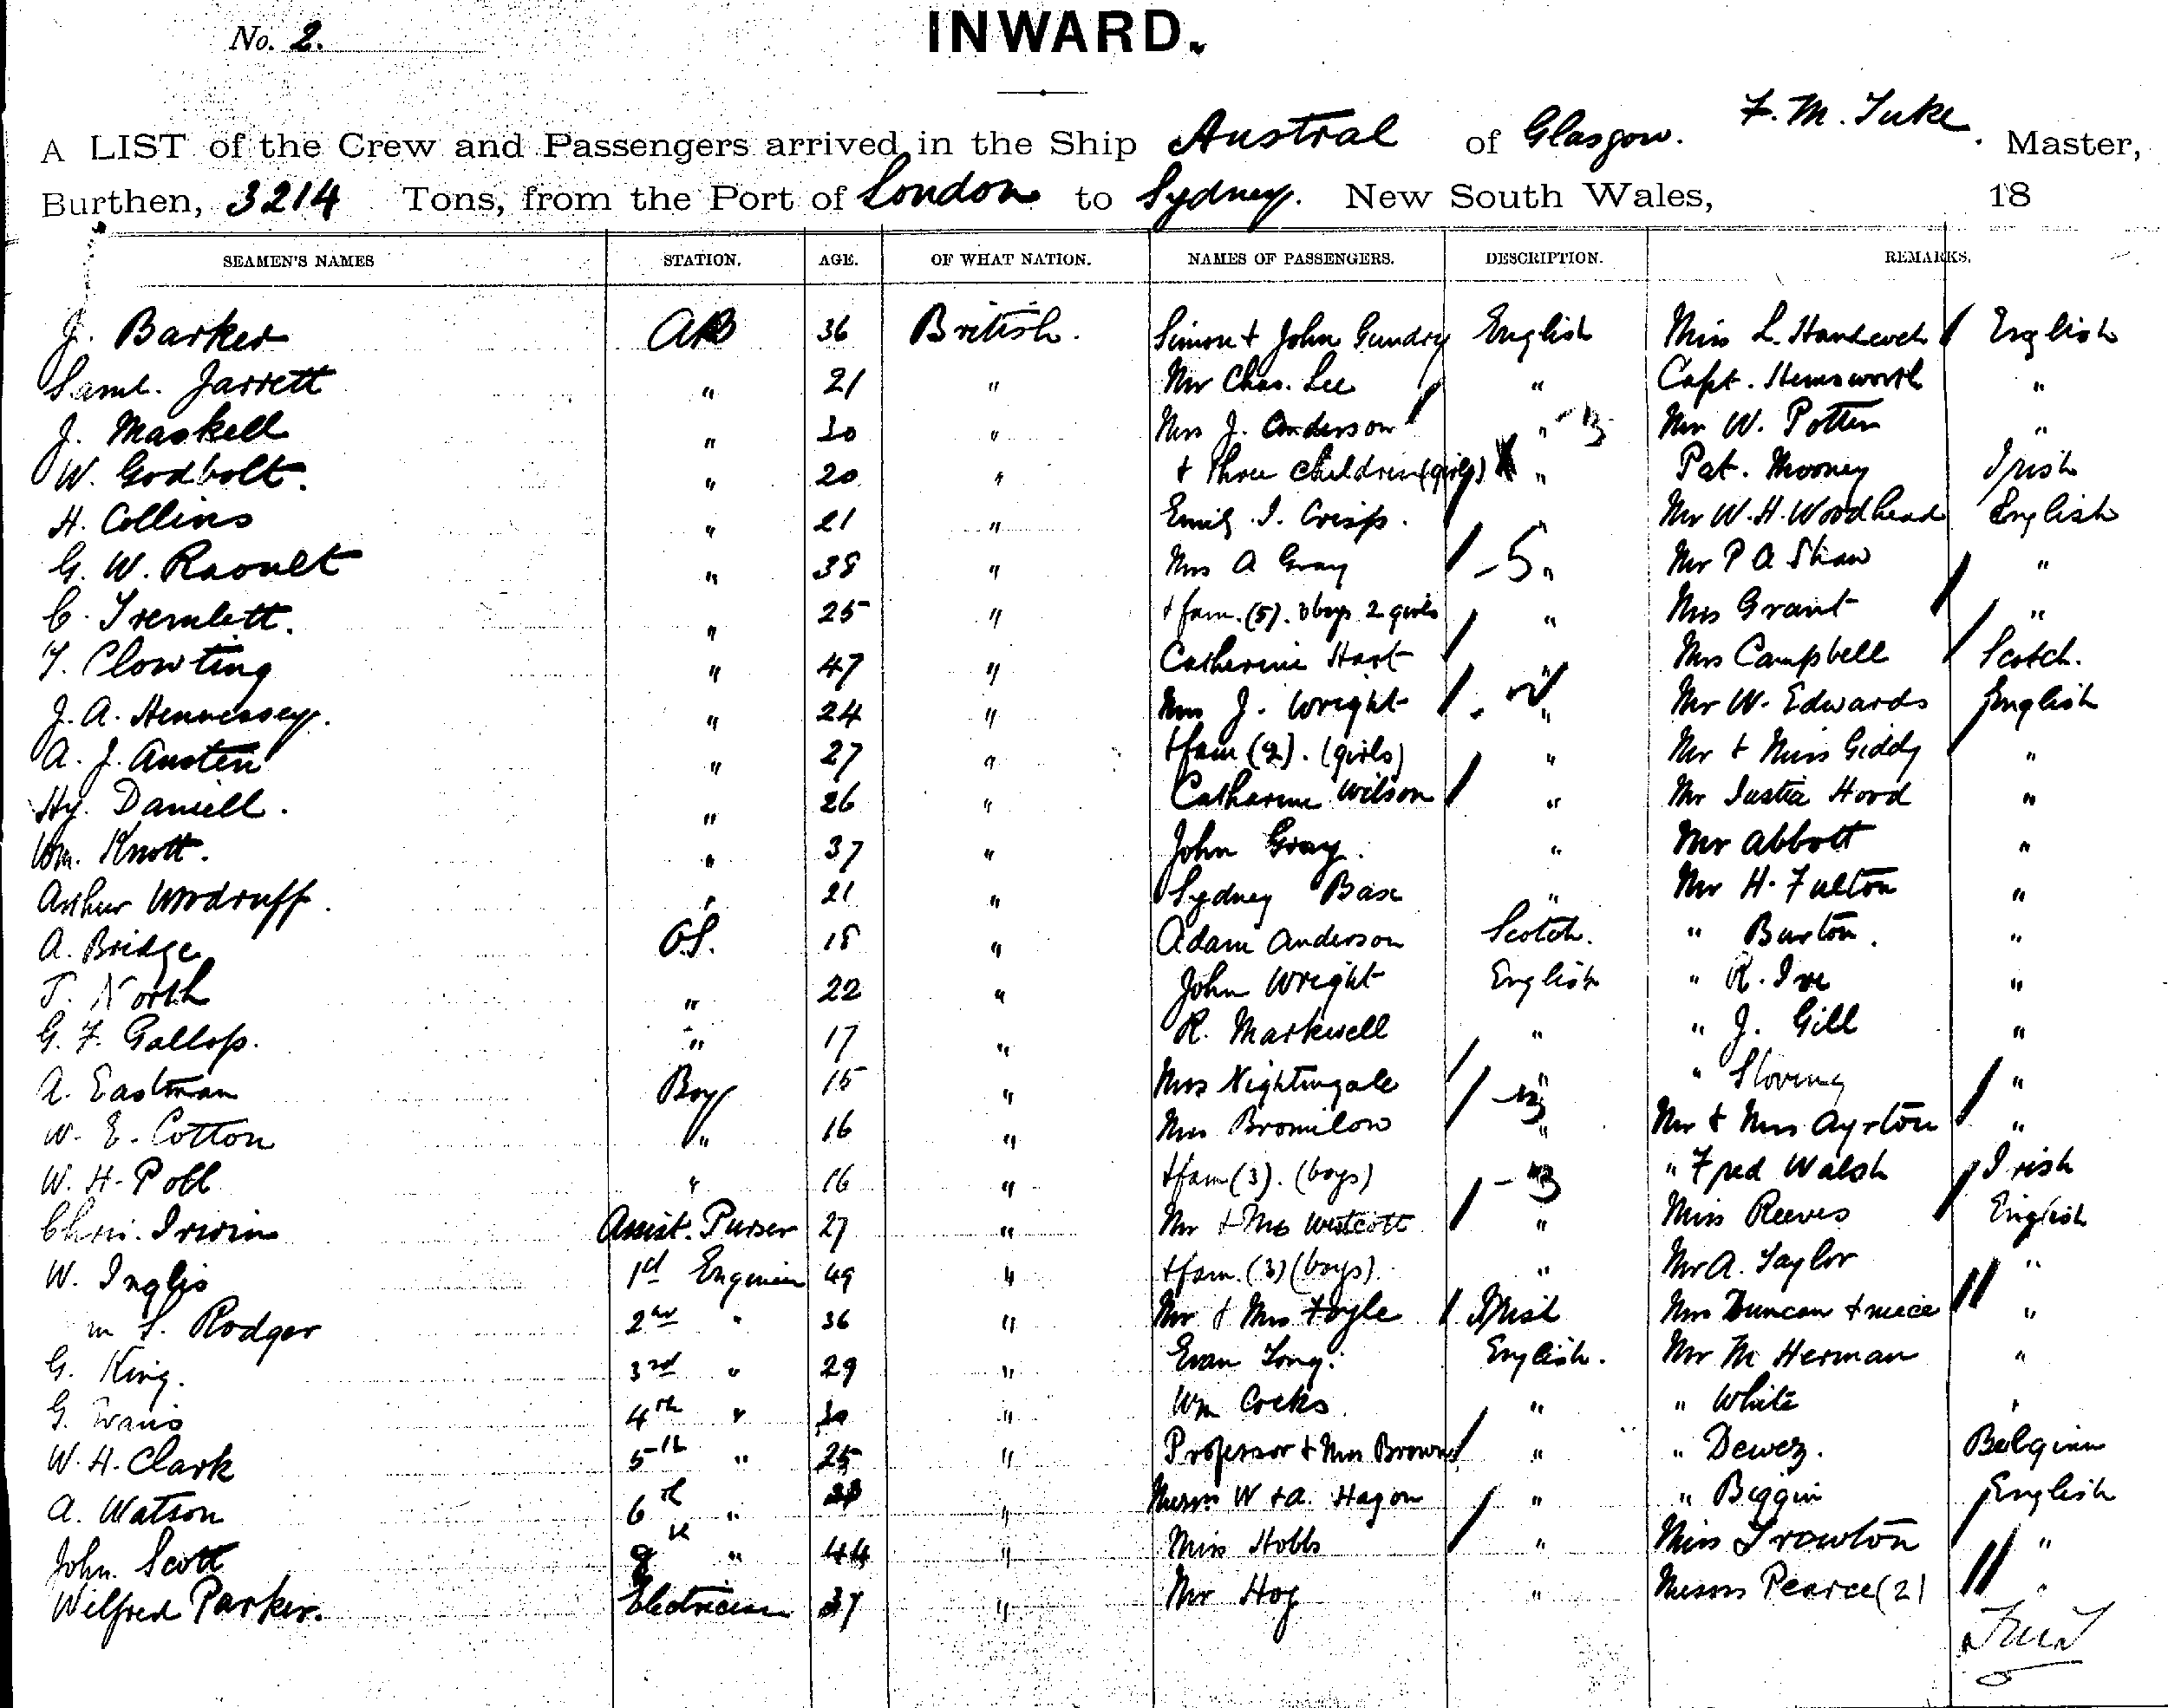 No. 2.
INWARD.
F. M. Tuke
A LIST of the Crew and Passengers arrived in the Ship Austral of Glasgow. Master,
Burthen, 3214 Tons, from the Port of London to Sydney. New South Wales, 18
SEAMEN'S NAMES STATION. AGE. OF WHAT NATION. NAMES OF PASSENGERS. DESCRIPTION. REMARKS.
J. Barker AB 36 British. Simon + John Gundry English Miss L. English
Saml. Jarrett " 21 " Mr Chas. Lee " Capt. Hemsworth "
J. Maskell " 30 " Mrs J. Anderson " 3 Mr W. Potter "
W. Godbolt. " 20 " + three children (girls) " Pat. Mooney Irish
H. Collins " 21 " Emily I. Crisp. " Mr W. H. Woodhead English
G. W. Raoult " 38 " Mrs A Gray - 5 " Mr P A Shaw "
C. Tremlett. " 25 " + fam. (5). 3 boys 2 girls " Mrs Grant "
T. Clowting " 47 " Catherine Hart Mrs Campbell Scotch.
J. A. Hennessey. " 24 " Mrs J. Wright " Mr W. Edwards English
A. J. Austen " 27 " + fam (2). (girls) " Mr + Miss Giddy "
Hy. Daniell. " 26 " Catharine Wilson " Mr Justice Hood "
Wm. Knott. " 37 " John Gray. " Mr Abbott "
Arthur Woodruff. " 21 " Sydney " Mr H. Fulton "
A. Bridge O.S. 18 " Adam Anderson Scotch. " Burton. "
T. North " 22 " John Wright English " R. Ive "
G. F. Gallop. " 17 " R. Markwell " " J. Gill "
A. Eastman Boy 15 " Mrs Nightingale " " "
W. E. Cotton " 16 " Mrs Bromilow " Mr + Mrs Ayrton "
W. H. Poll " 16 " + fam (3). (boys) - 3 " Fred Walsh Irish
Irwin Assist. Purser 27 " Mr + Mrs Westcott " Miss Reeves English
W. Inglis 1st Engineer 49 " + fam. (3) (boys). " Mr A. Taylor "
Rodger 2nd " 36 " Mr + Mrs Foyle Irish Mrs Duncan + niece "
G. King. 3rd " 29 " Evan Long. English. Mr M Herman "
G. 4th " 30 " Wm Cocks " " White "
W. H. Clark 5th " 25 " Professor + Mrs Browne " " Dewez. Belgian
A. Watson 6th " " W + A. Hagon " " Biggin English
John Scott 8th " 44 " Miss Hobbs " Miss Trowton "
Wilfred Parker. Electrician 37 " Mr Hoy " Pearce (2) "